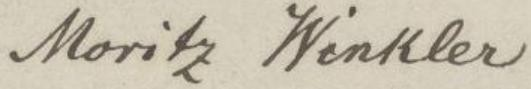 Moritz Winkler